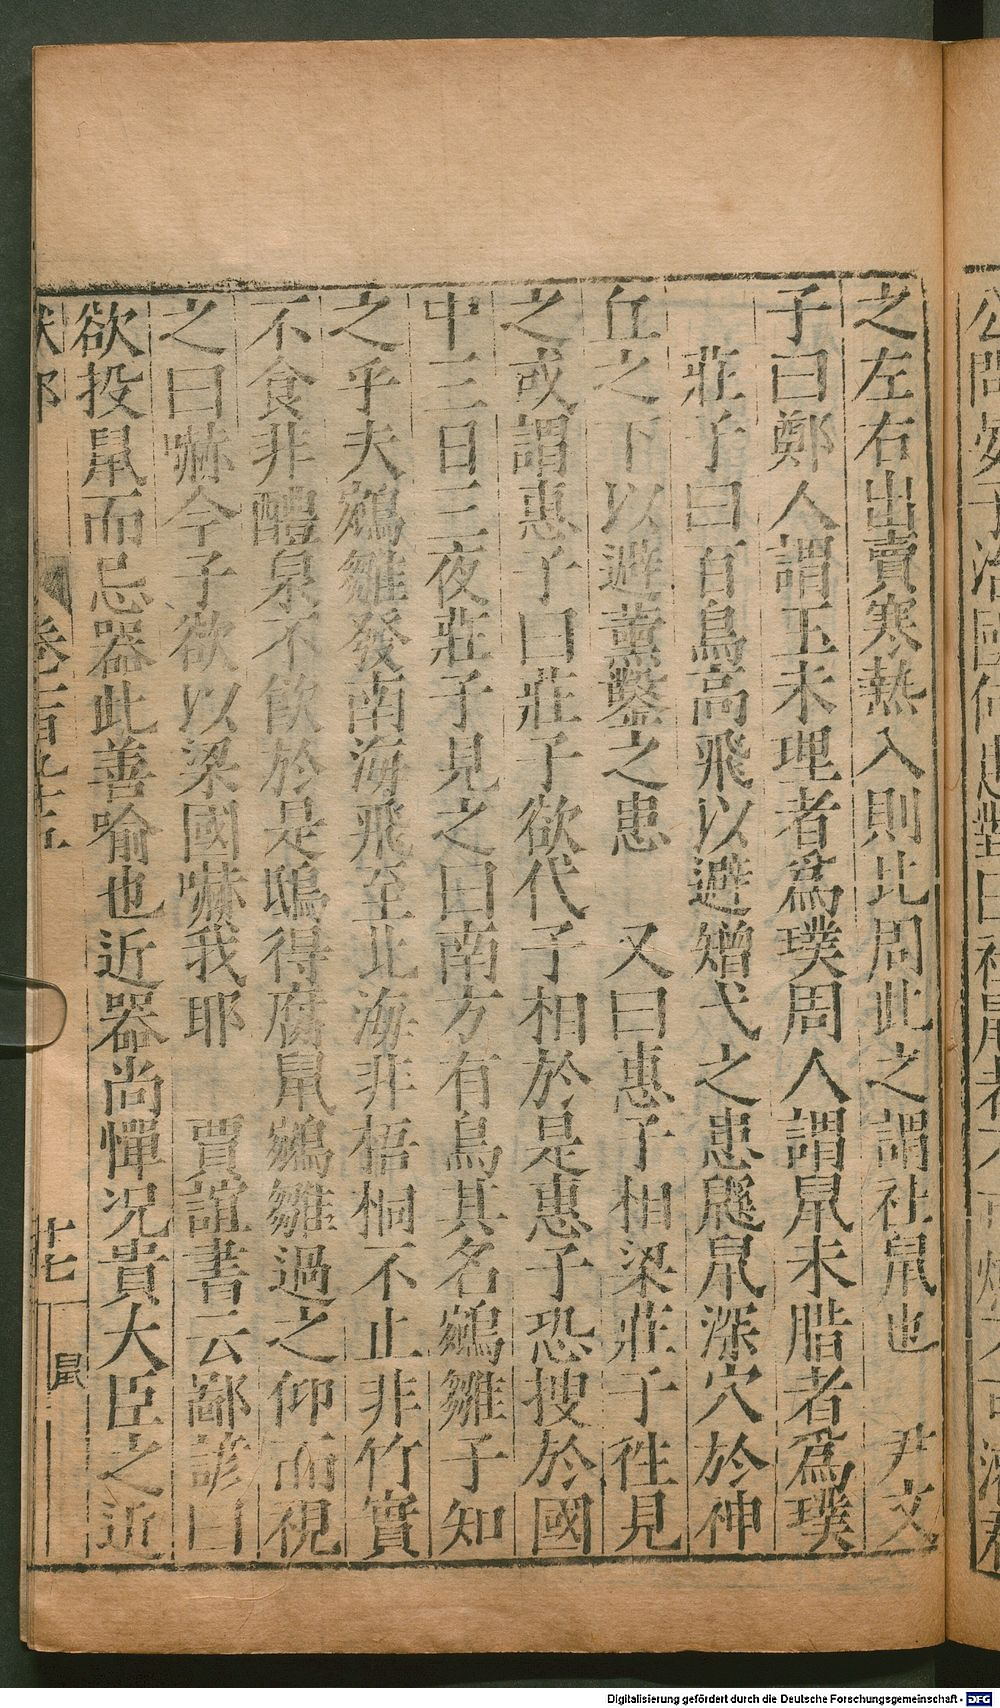 之左右出賣寒熱入則比周此之謂社鼠也　尹文
子曰鄭人謂玉未理者為璞周人謂鼠未腊者為璞
莊子曰百鳥高飛以避矰弋之患鼷鼠深穴於神
丘之下以避薰鑿之患　又曰惠子相梁莊子徃見
之或謂惠子曰莊子欲代子相於是惠子恐搜於國
中三日三夜莊子見之曰南方有鳥其名鵷雛子知
之乎夫鵷雛發南海飛至北海非梧桐不止非竹實
不食非醴泉不飲於是鴟得腐鼠鵷雛過之仰而視
之曰嚇今子欲以梁國嚇我耶　賈誼書云鄙諺曰
欲投鼠而忌器此善喻也近器尚憚况貴大臣之近
獸部　卷一百九十五　十七　鼠
Digitalisierung gefördert durch die Deutsche Forschungsgemeinschaft - DFG